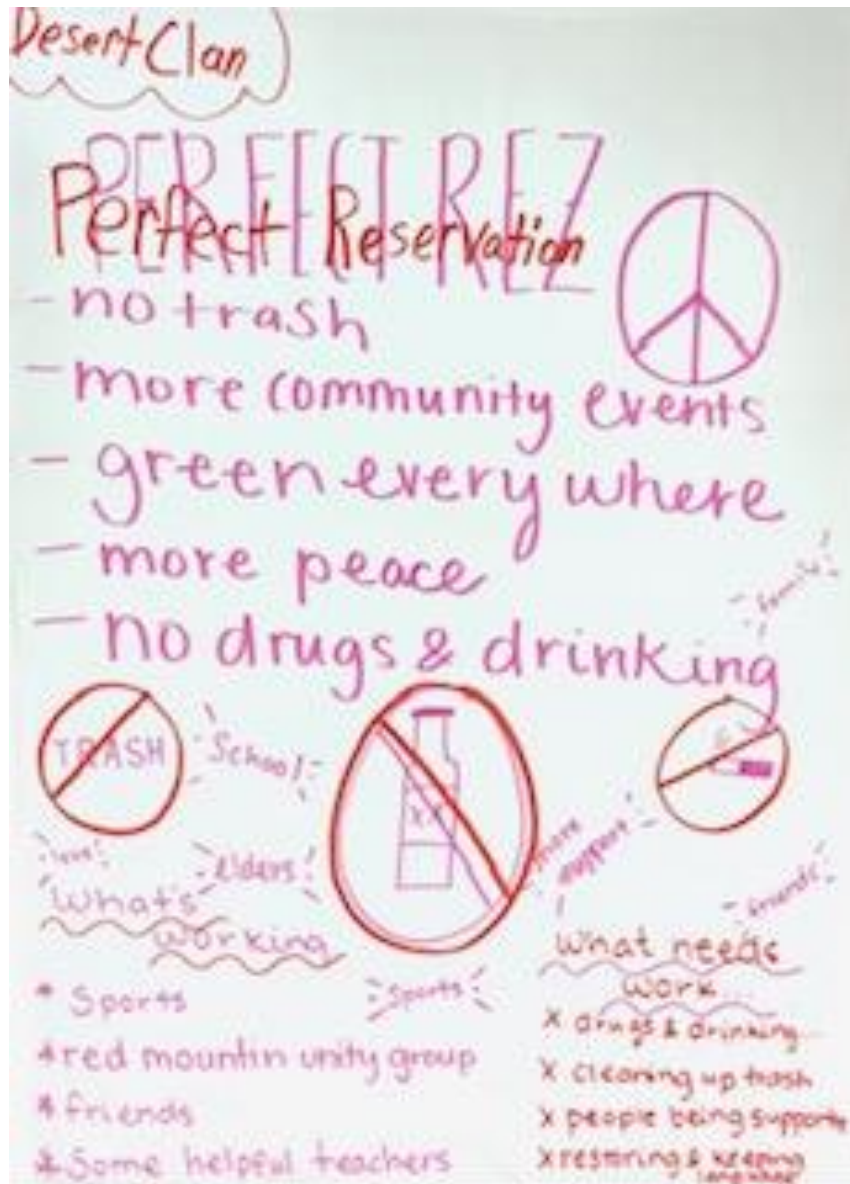 Desert Clan
PERFECT REZ
Perfect Reservation
- no trash
- more community events
- green every where
- more peace
- no drugs & drinking
family
TRASH
School
XX
love
elders
more
support
friends
What's
working
sports
* Sports
* red mountin unity group
* friends
* Some helpful teachers
What needs
work
x drugs & drinking
x cleaning up trash
x people being supportive
x restoring & keeping
language